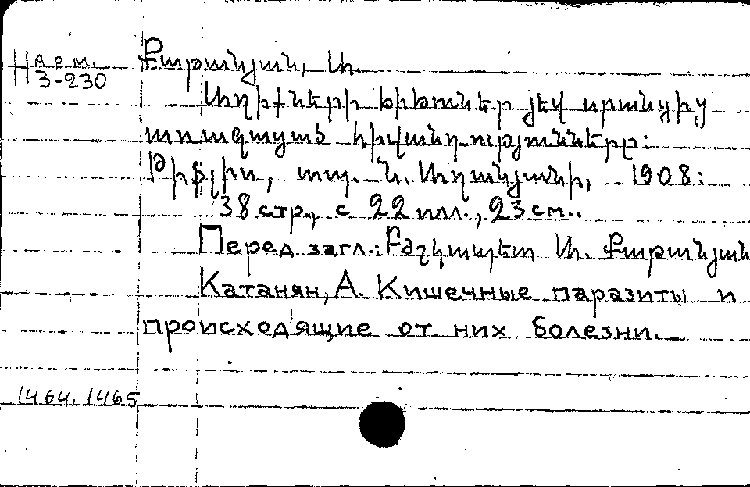 Арм.
3-230
Քաթանյան, Ա.
Աղիքների ճիճուներ յեվ սրանցից
առազացած հիվանդությունները:
Թիֆլիս, տպ. Ն. Աղանյանի, 1908:
38 стр., с 22 илл., 23 см..
Перед загл.: Բժշկապետ Ա. Քաթանյան
Катанян, А. Кишечные паразиты и
происходящие от них болезни.
1464. 1465